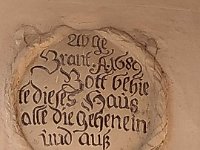 Ab ge
Brant. A. 1689
Gott behie
te dieses Haus
alle die gehen ein
und auß